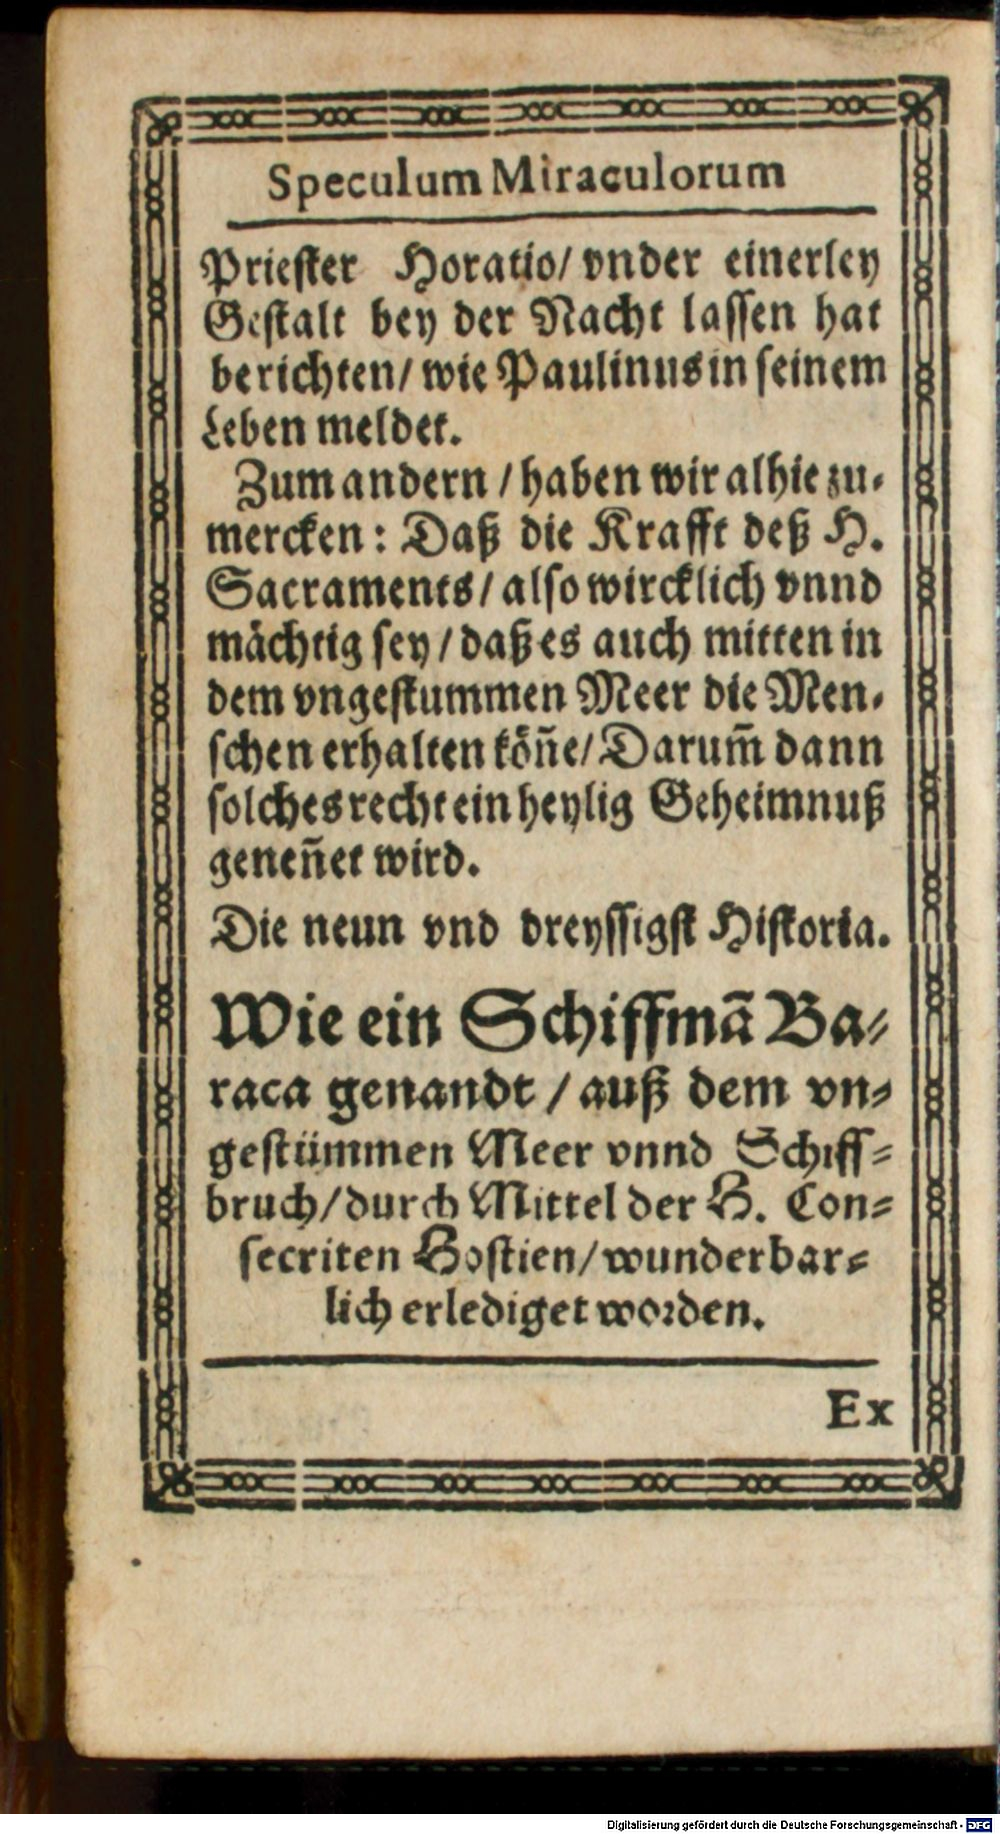 Speculum Miraculorum
Priester Horatio/ vnder einerley
Gestalt bey der Nacht lassen hat
berichten/ wie Paulinus in seinem
Leben meldet.
Zum andern / haben wir alhie zu-
mercken: Daß die Krafft deß H.
Sacraments/ also wircklich vnnd
mächtig sey / daß es auch mitten in
dem vngestummen Meer die Men-
schen erhalten köñe/ Darum̃ dann
solches recht ein heylig Geheimnuß
geneñet wird.
Die neun vnd dreyssigst Historia.
Wie ein Schiffmã Ba-
raca genandt / auß dem vn-
gestümmen Meer vnnd Schiff-
bruch/ durch Mittel der H. Con-
secriten Hostien/ wunderbar-
lich erlediget worden.
Ex
Digitalisierung gefördert durch die Deutsche Forschungsgemeinschaft - DFG